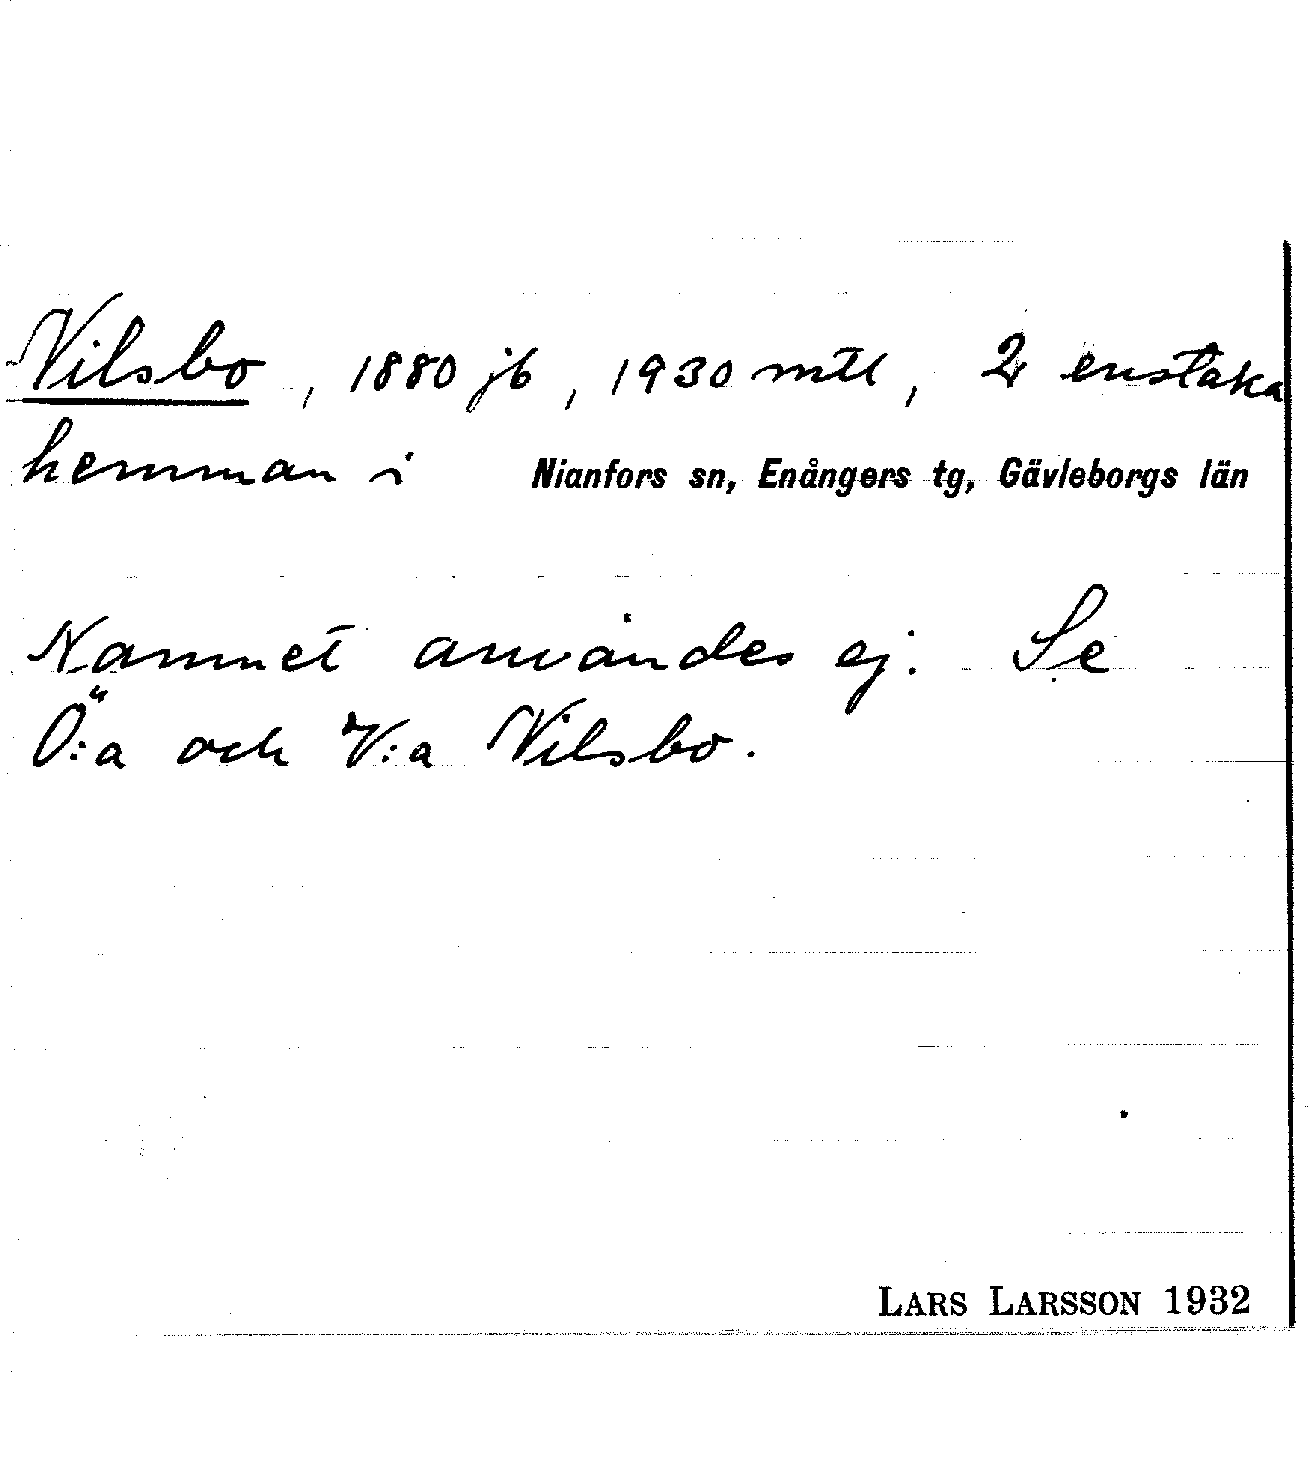 Vilsbo, 1880 jb, 1930 mtl, 2 enstaka
hemman i Nianfors sn, Enångers tg, Gävleborgs län
Namnet användes ej. Se
Ö:a och V:a Vilsbo.
LARS LARSSON 1932